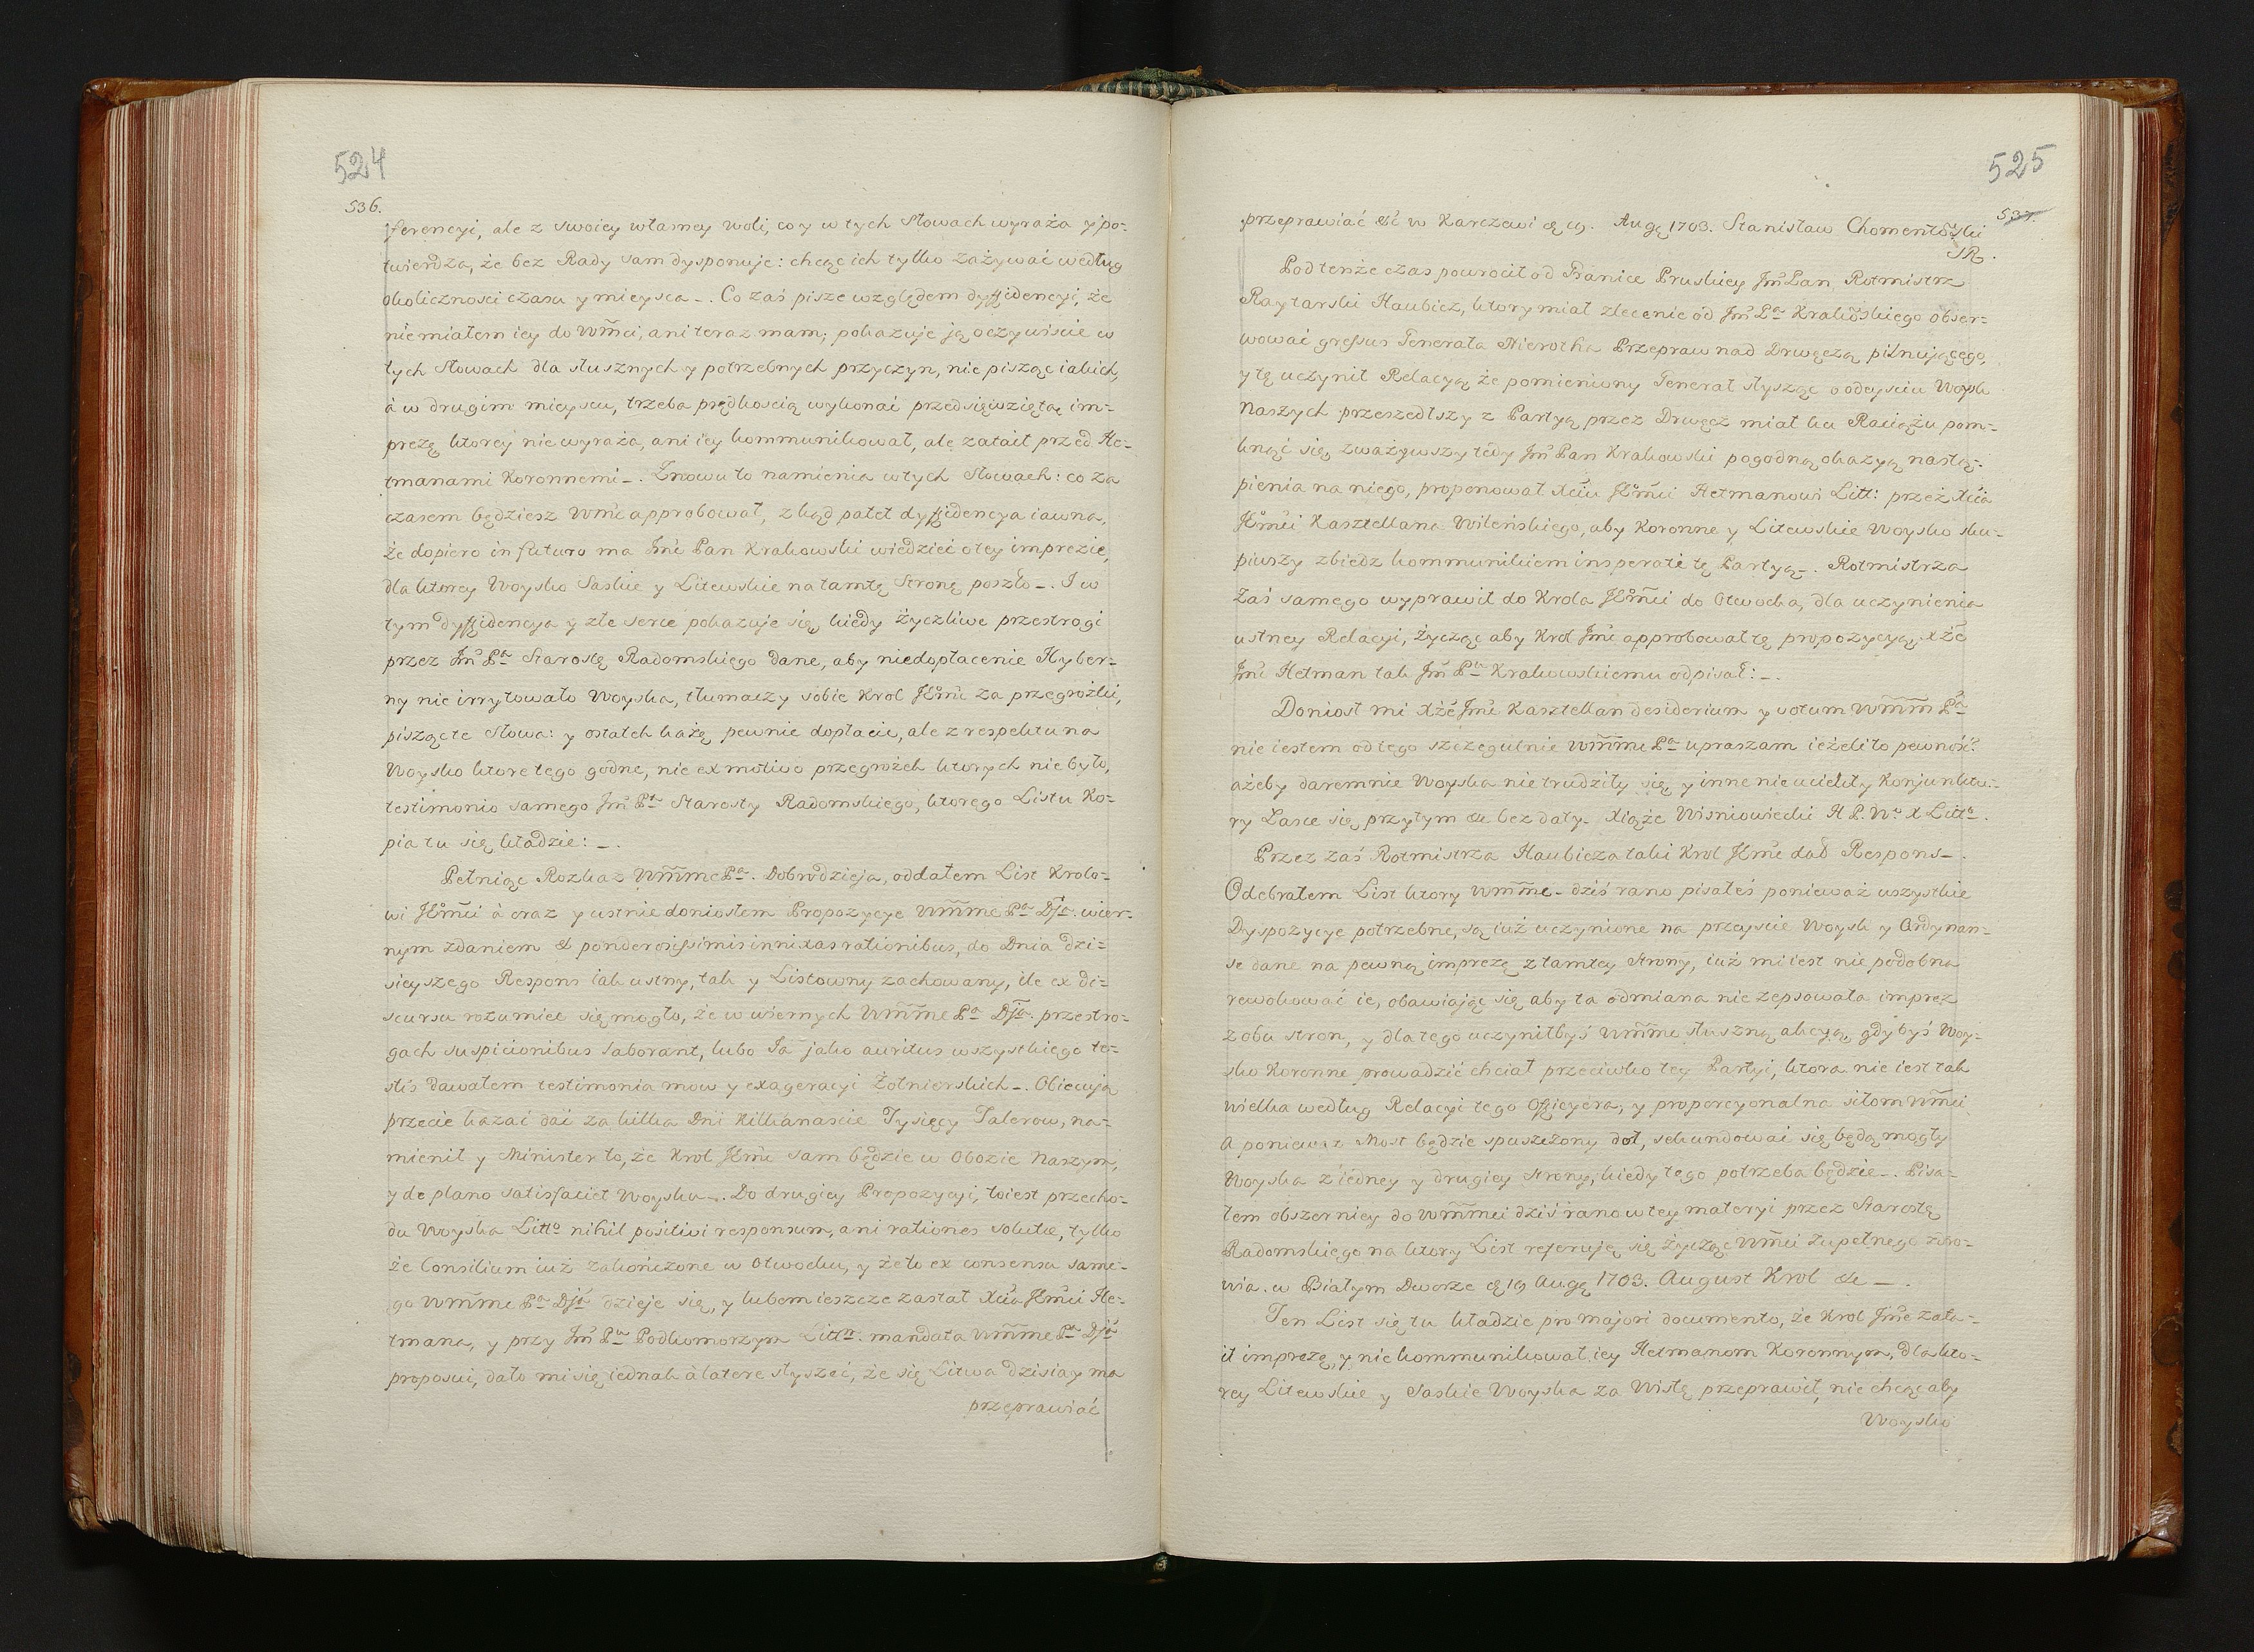 524
536.
ferencyi, ale z swoiey własney woli, co y w tych Słowach wyraża y po-
twierdza, że bez Rady sam dysponuje: chcąc ich tylko zażywać według
okolicznosci czasu y mieysca -. Co zaś pisze względem dyffidencyi, że
niemiałem iey do Wm̃ci, ani teraz mam; pokazuje ją oczywiscie w
tych Słowach dla słusznych y potrzebnych przyczyn, nie pisząc iakich,
à w drugim mieyscu, trzeba prędkoscią wykonać przedsięwziętą im-
prezę ktorey nie wyraża, ani iey kommunikował, ale zataił przed He-
tmanami Koronnemi -. Znowu to namienia w tych Słowach: co za
czasem będziesz Wmć approbował, zkąd patet dyffidencya iawna,
że dopiero in futuro ma Jmć Pan Krakowski wiedzieć o tey imprezie,
dla ktorey Woysko Saskie y Litewskie na tamtę Stronę poszło -. I w
tym dyffidencya y złe serce pokazuje się, kiedy życzliwe przestrogi
przez Jm̃ Pa Starostę Radomskiego dane, aby niedopłacenie Hyber-
ny nie irrytowało Woyska, tłumaczy sobie Krol JKm̃ć za przegrożki,
pisząc te Słowa: y ostatek każę pewnie dopłacić, ale z respektu na
Woysko ktore tego godne, nie ex motivo przegrożek ktorych nie było,
testimonio samego Jm̃ Pa Starosty Radomskiego, ktorego Listu Ko-
pia tu się kładzie: -.
Pełniąc Rozkaz Wm̃m̃c Pa. Dobrodzieja, oddałem List Krolo-
wi JKm̃ci à oraz y ustnie doniosłem Propozycye Wm̃mc Pa Dja. wier-
nym zdaniem & ponderosissimis innixas rationibus, do Dnia dzi-
sieyszego Respons iak ustny, tak y Listowny zachowany, ile ex di-
scursu rozumieć się mogło, że w wiernych Wm̃m̃c Pa Dja. przestro-
gach suspicionibus laborant, lubo Ja jako auritus wszystkiego te-
stis dawałem testimonia mow y exageracyi Żołnierskich -. Obiecują
przecie kazać dać za kilka Dni Kilkanascie Tysięcy Talerow, na-
mienił y Minister to, że Krol JKm̃ć sam będzie w Obozie Naszym,
y de plano satisfaciet Woysku -. Do drugiey Propozycyi, toiest przecho-
du Woyska Litto nihil positivi responsum, ani rationes solutæ, tylko
że Consilium iuż zakończone w Otwocku, y że to ex consensu same-
go Wm̃m̃c Pa Dja dzieje się, y lubom ieszcze zastał Xcia JKm̃ci He-
tmana, y przy Jm̃ Pu Podkomorzym Litt. mandata Wm̃m̃c Pa Dja
proposui, dało mi się iednak à latere słyszeć, że się Litwa dzisiay ma
przeprawiać
525
537.
przeprawiać &c w Karczewi d. 19. Aug 1703. Stanisław Chomentowski
SR.
Pod tenże czas powrocił od Granice Pruskiey Jm̃ Pan Rotmistrz
Raytarski Haubicz, ktory miał zlecenie od Jm̃ Pa Krakowskiego obser-
wować gressus Generała Nierotha Przepraw nad Drwęczą pilnującego,
y tę uczynił Relacyą że pomieniony Generał słysząc o odeysciu Woysk
Naszych przeszedłszy z Partyą przez Drwęcz miał ku Raciążu pom-
knąć się, zważywszy tedy Jm̃ Pan Krakowski pogodną okazyą nastą-
pienia na niego, proponował Xciu JKm̃ci Hetmanowi Litt: przez Xcia
JKm̃ci Kasztellana Wileńskiego, aby Koronne y Litewskie Woysko sku-
piwszy zbiedz kommunikiem insperatè tę Partyą -. Rotmistrza
zaś samego wyprawił do Krola JKm̃ci do Otwocka, dla uczynienia
ustney Relacyi, życząc aby Krol Jmć approbował tę propozycyą, Xże
Jmć Hetman tak Jm̃ Pu Krakowskiemu odpisał: -.
Doniosł mi Xże Jmć Kasztellan desiderium y votum Wm̃m̃ Pa
nie iestem od tego szczegulnie Wm̃m̃c Pa upraszam ieżeli to pewność
ażeby daremnie Woyska nie trudziły się, y inne nie uciekły Konjunktu-
ry Łasce się przytym &c bez daty - Xiąże Wisniowiecki H P. W. X Litto.
Przez zaś Rotmistrza Haubicza taki Krol JKmć dał Respons -.
Odebrałem List ktory Wm̃m̃c - dziś rano pisałeś ponieważ wszystkie
Dyspozycye potrzebne, są iuż uczynione na przeyscie Woysk y Ordynan-
se dane na pewną imprezę z tamtey strony, iuż mi iest nie podobna
rewokować ie, obawiając się aby ta odmiana nie zepsowała imprez
z obu stron, y dla tego uczyniłbyś Wm̃m̃c słuszną akcyą, gdybyś Woy-
sko Koronne prowadzić chciał przeciwko tey Partyi, ktora nie iest tak
wielka według Relacyi tego Officyera, y proporcyonalna siłom Wm̃ci
A ponieważ Most będzie spuszczony doł, sekundować się będą mogły
Woyska z iedney y drugiey strony, kiedy tego potrzeba będzie -. Pisa-
łem obszerniey do Wm̃m̃ci dziś rano w tey materyi przez Starostę
Radomskiego na ktory List referuję się życząc Wm̃ci zupełnego zdro-
wia. w Białym Dworze d 19 Aug 1703. August Krol &c -.
Ten List się tu kładzie pro majori documento, że Krol Jmć zata-
ił imprezę, y nie kommunikował iey Hetmanom Koronnym, dla kto-
rey Litewskie y Saskie Woyska za Wisłę przeprawił, nie chcąc aby
Woysko